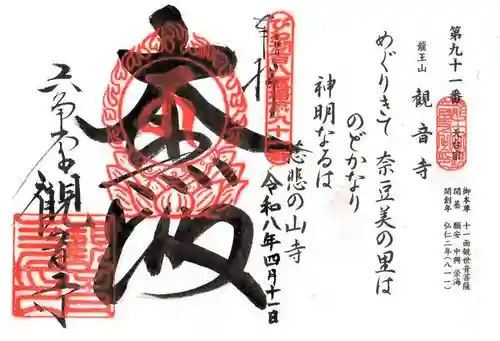 第九十一番
龍王山
観音寺
天台宗
御本尊 十一面観世音菩薩
開基 願安 中興 栄海
開創年 弘仁二年(八一一)
めぐりきて 奈豆美の里は
のどかなり
神明なるは
慈悲の山寺
奉拝
令和八年四月十一日
大悲殿
六角堂
観音寺